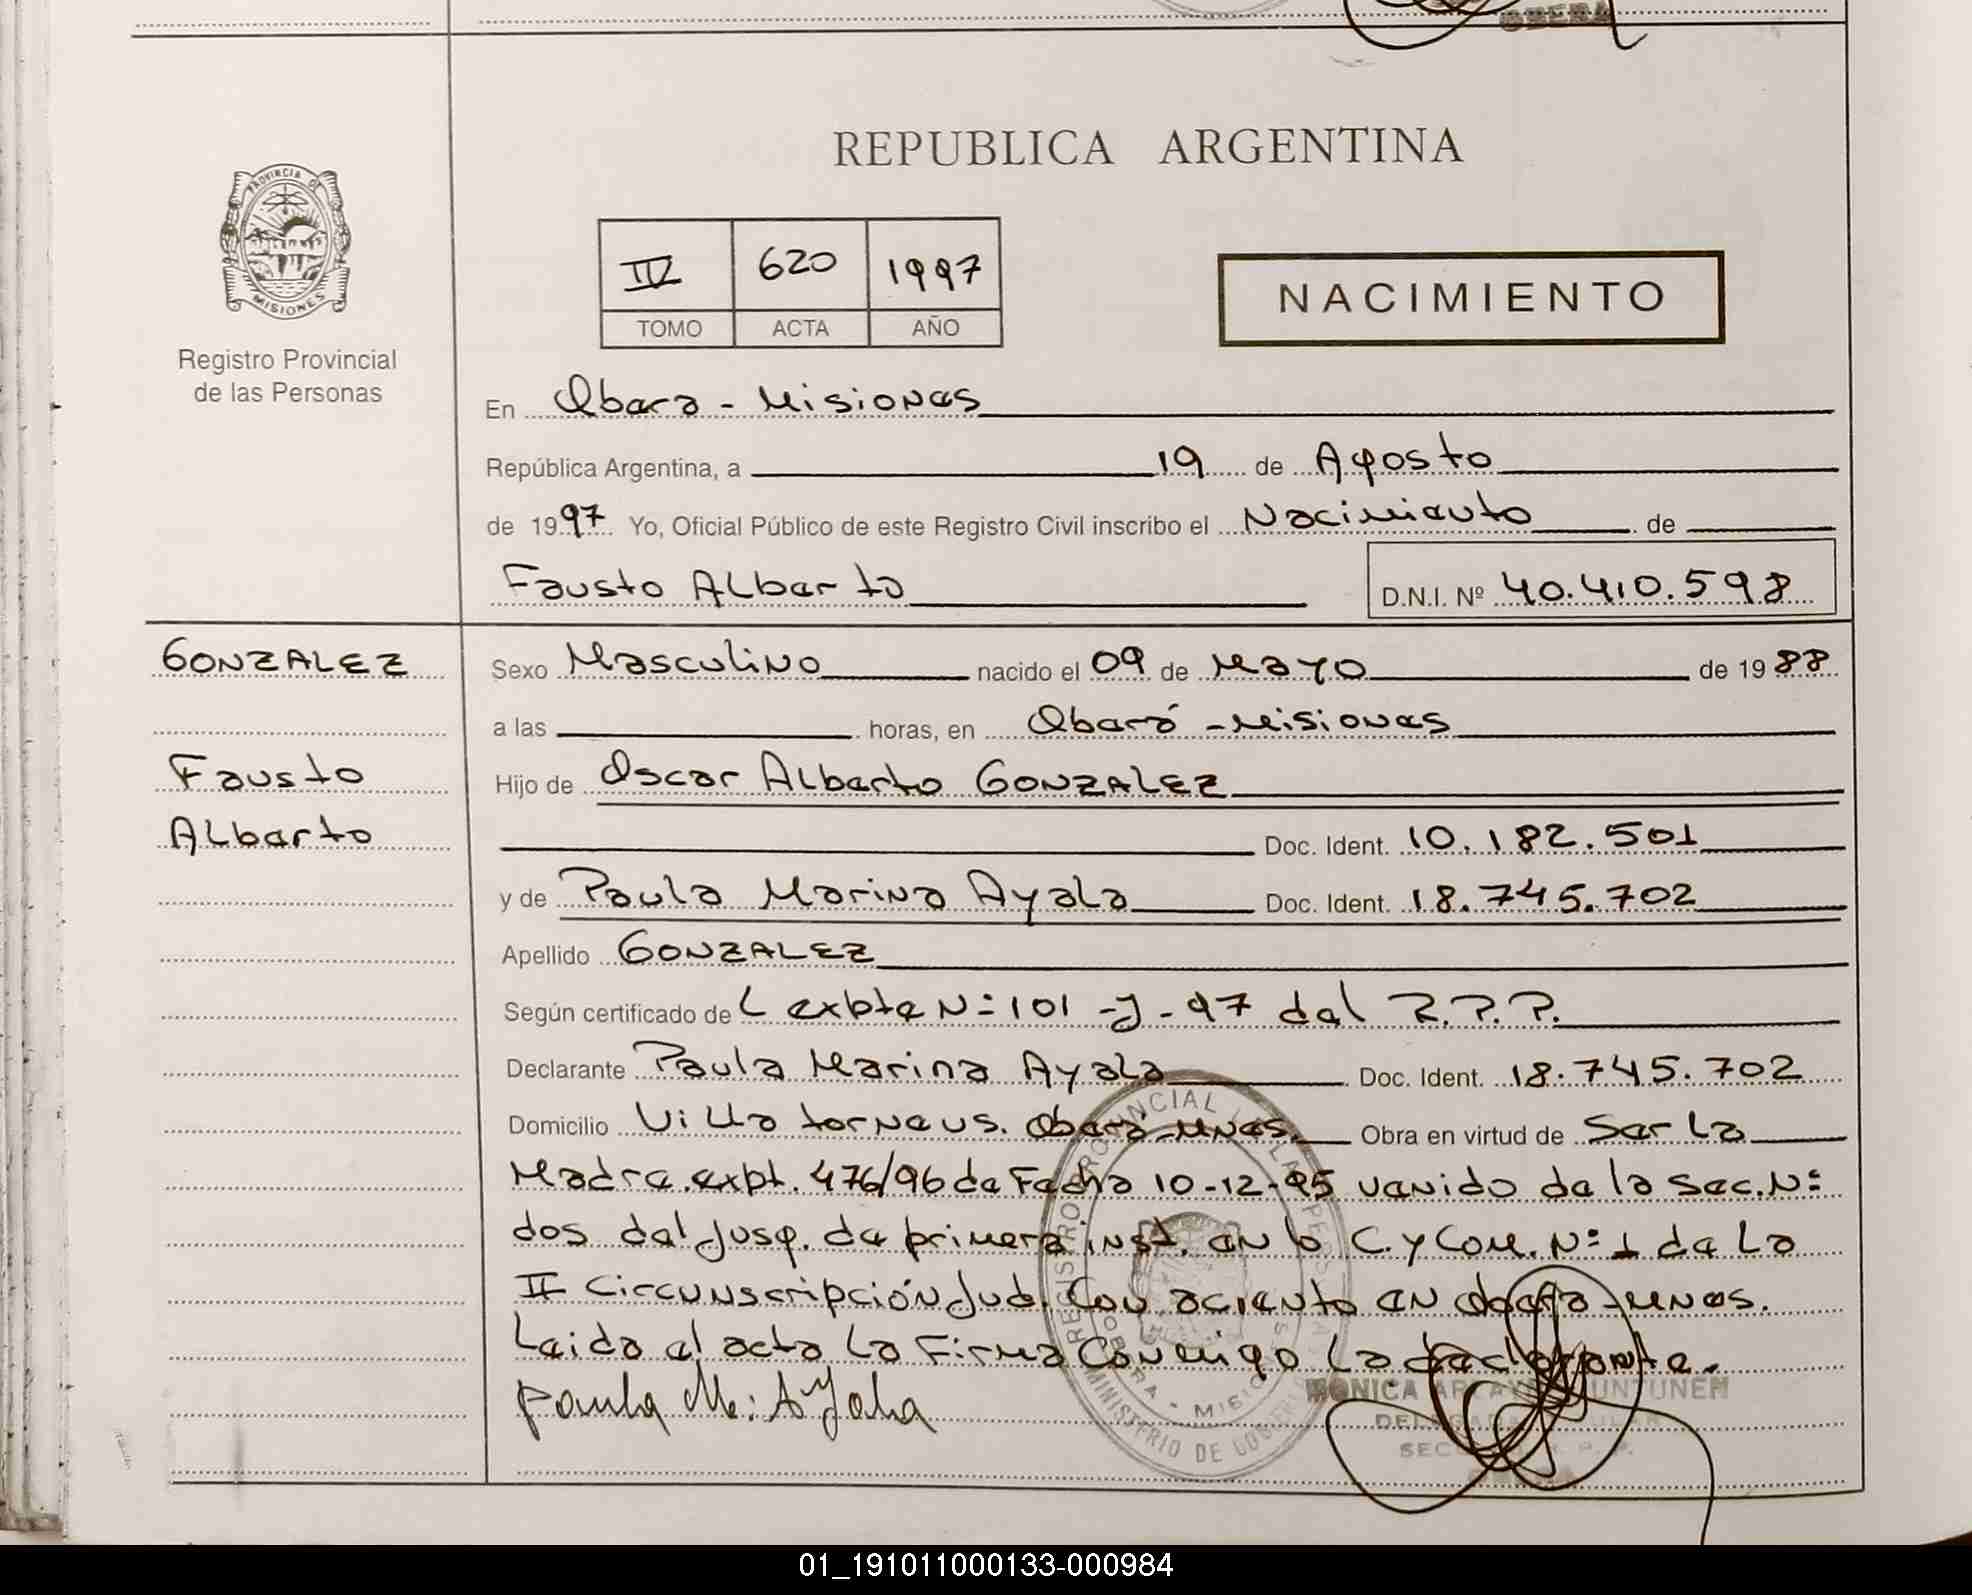 OBERA
REPUBLICA ARGENTINA
PROVINCIA DE
MISIONES
Registro Provincial
de las Personas
IV 620 1997
TOMO ACTA AÑO
NACIMIENTO
En Obera - Misiones
República Argentina, a 19 de Agosto
de 1997 Yo, Oficial Público de este Registro Civil inscribo el Nacimiento de
Fausto Alberto D.N.I. Nº 40.410.598
GONZALEZ
Fausto
Alberto
Sexo Masculino nacido el 09 de Mayo de 1988
a las horas, en Oberá - Misiones
Hijo de Oscar Alberto GONZALEZ
Doc. Ident. 10.182.501
y de Paula Marina Ayala Doc. Ident. 18.745.702
Apellido GONZALEZ
Según certificado de L expte Nº 101 - J - 97 del R.P.P.
Declarante Paula Marina Ayala Doc. Ident. 18.745.702
Domicilio Villa torneus. Oberá - Mnes. Obra en virtud de Ser La
Madre. expt. 476/96 de Fecha 10-12-95 venido de la Sec. Nº
dos del Jusg. de primera inst. en lo C. y Com. Nº 1 de La
II Circunscripción Jud. Con aciento en Obera - Mnes.
Leida el acta La Firma Conmigo La declarante.
Paula M. Ayala
REGISTRO PROVINCIAL DE LAS PERSONAS
MINISTERIO DE GOBIERNO
OBERA - MISIONES
MONICA
DELEGADA TITULAR
01_191011000133-000984